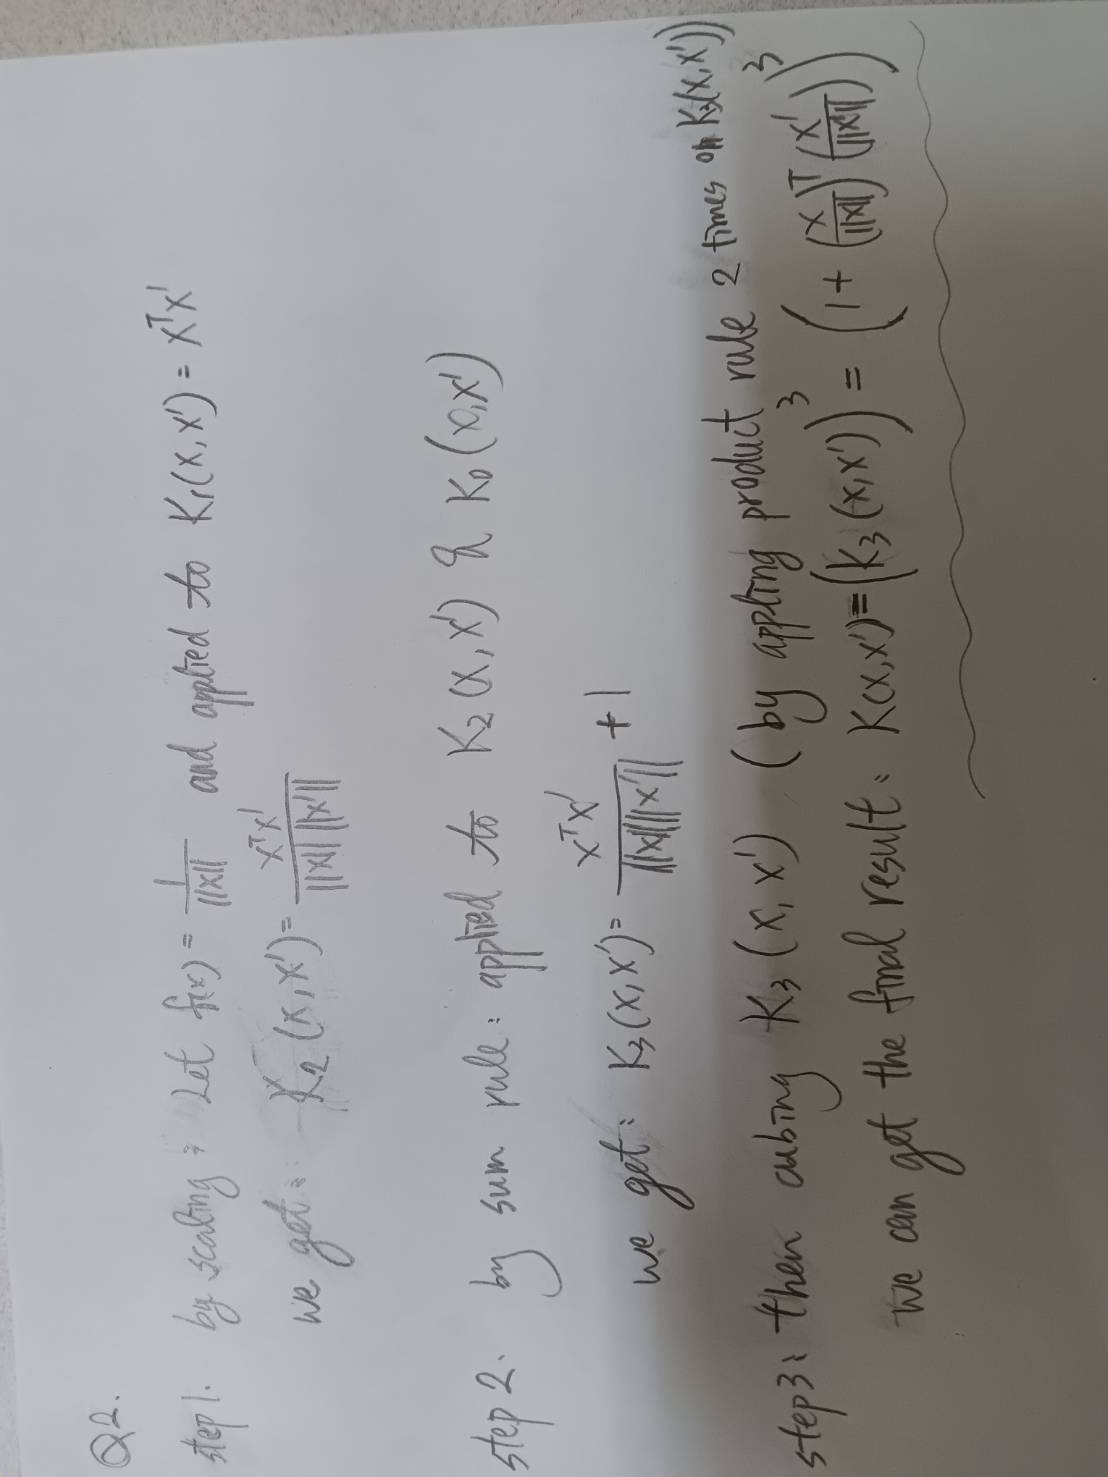 Q2.
step 1. by scaling : Let f(x) = 1/||x|| and applied to K₁(x,x') = xᵀx'
we get: K₂(x,x') = xᵀx'/||x|| ||x'||
step 2. by sum rule: applied to K₂(x,x') & K₀(x,x')
we get: K₃(x,x') = xᵀx'/||x||||x'|| + 1
step3: then cubing K₃(x,x') (by appling product rule 2 times on K₃(x,x'))
we can get the final result: K(x,x') = (K₃(x,x'))³ = (1 + (x/||x||)ᵀ (x'/||x'||))³